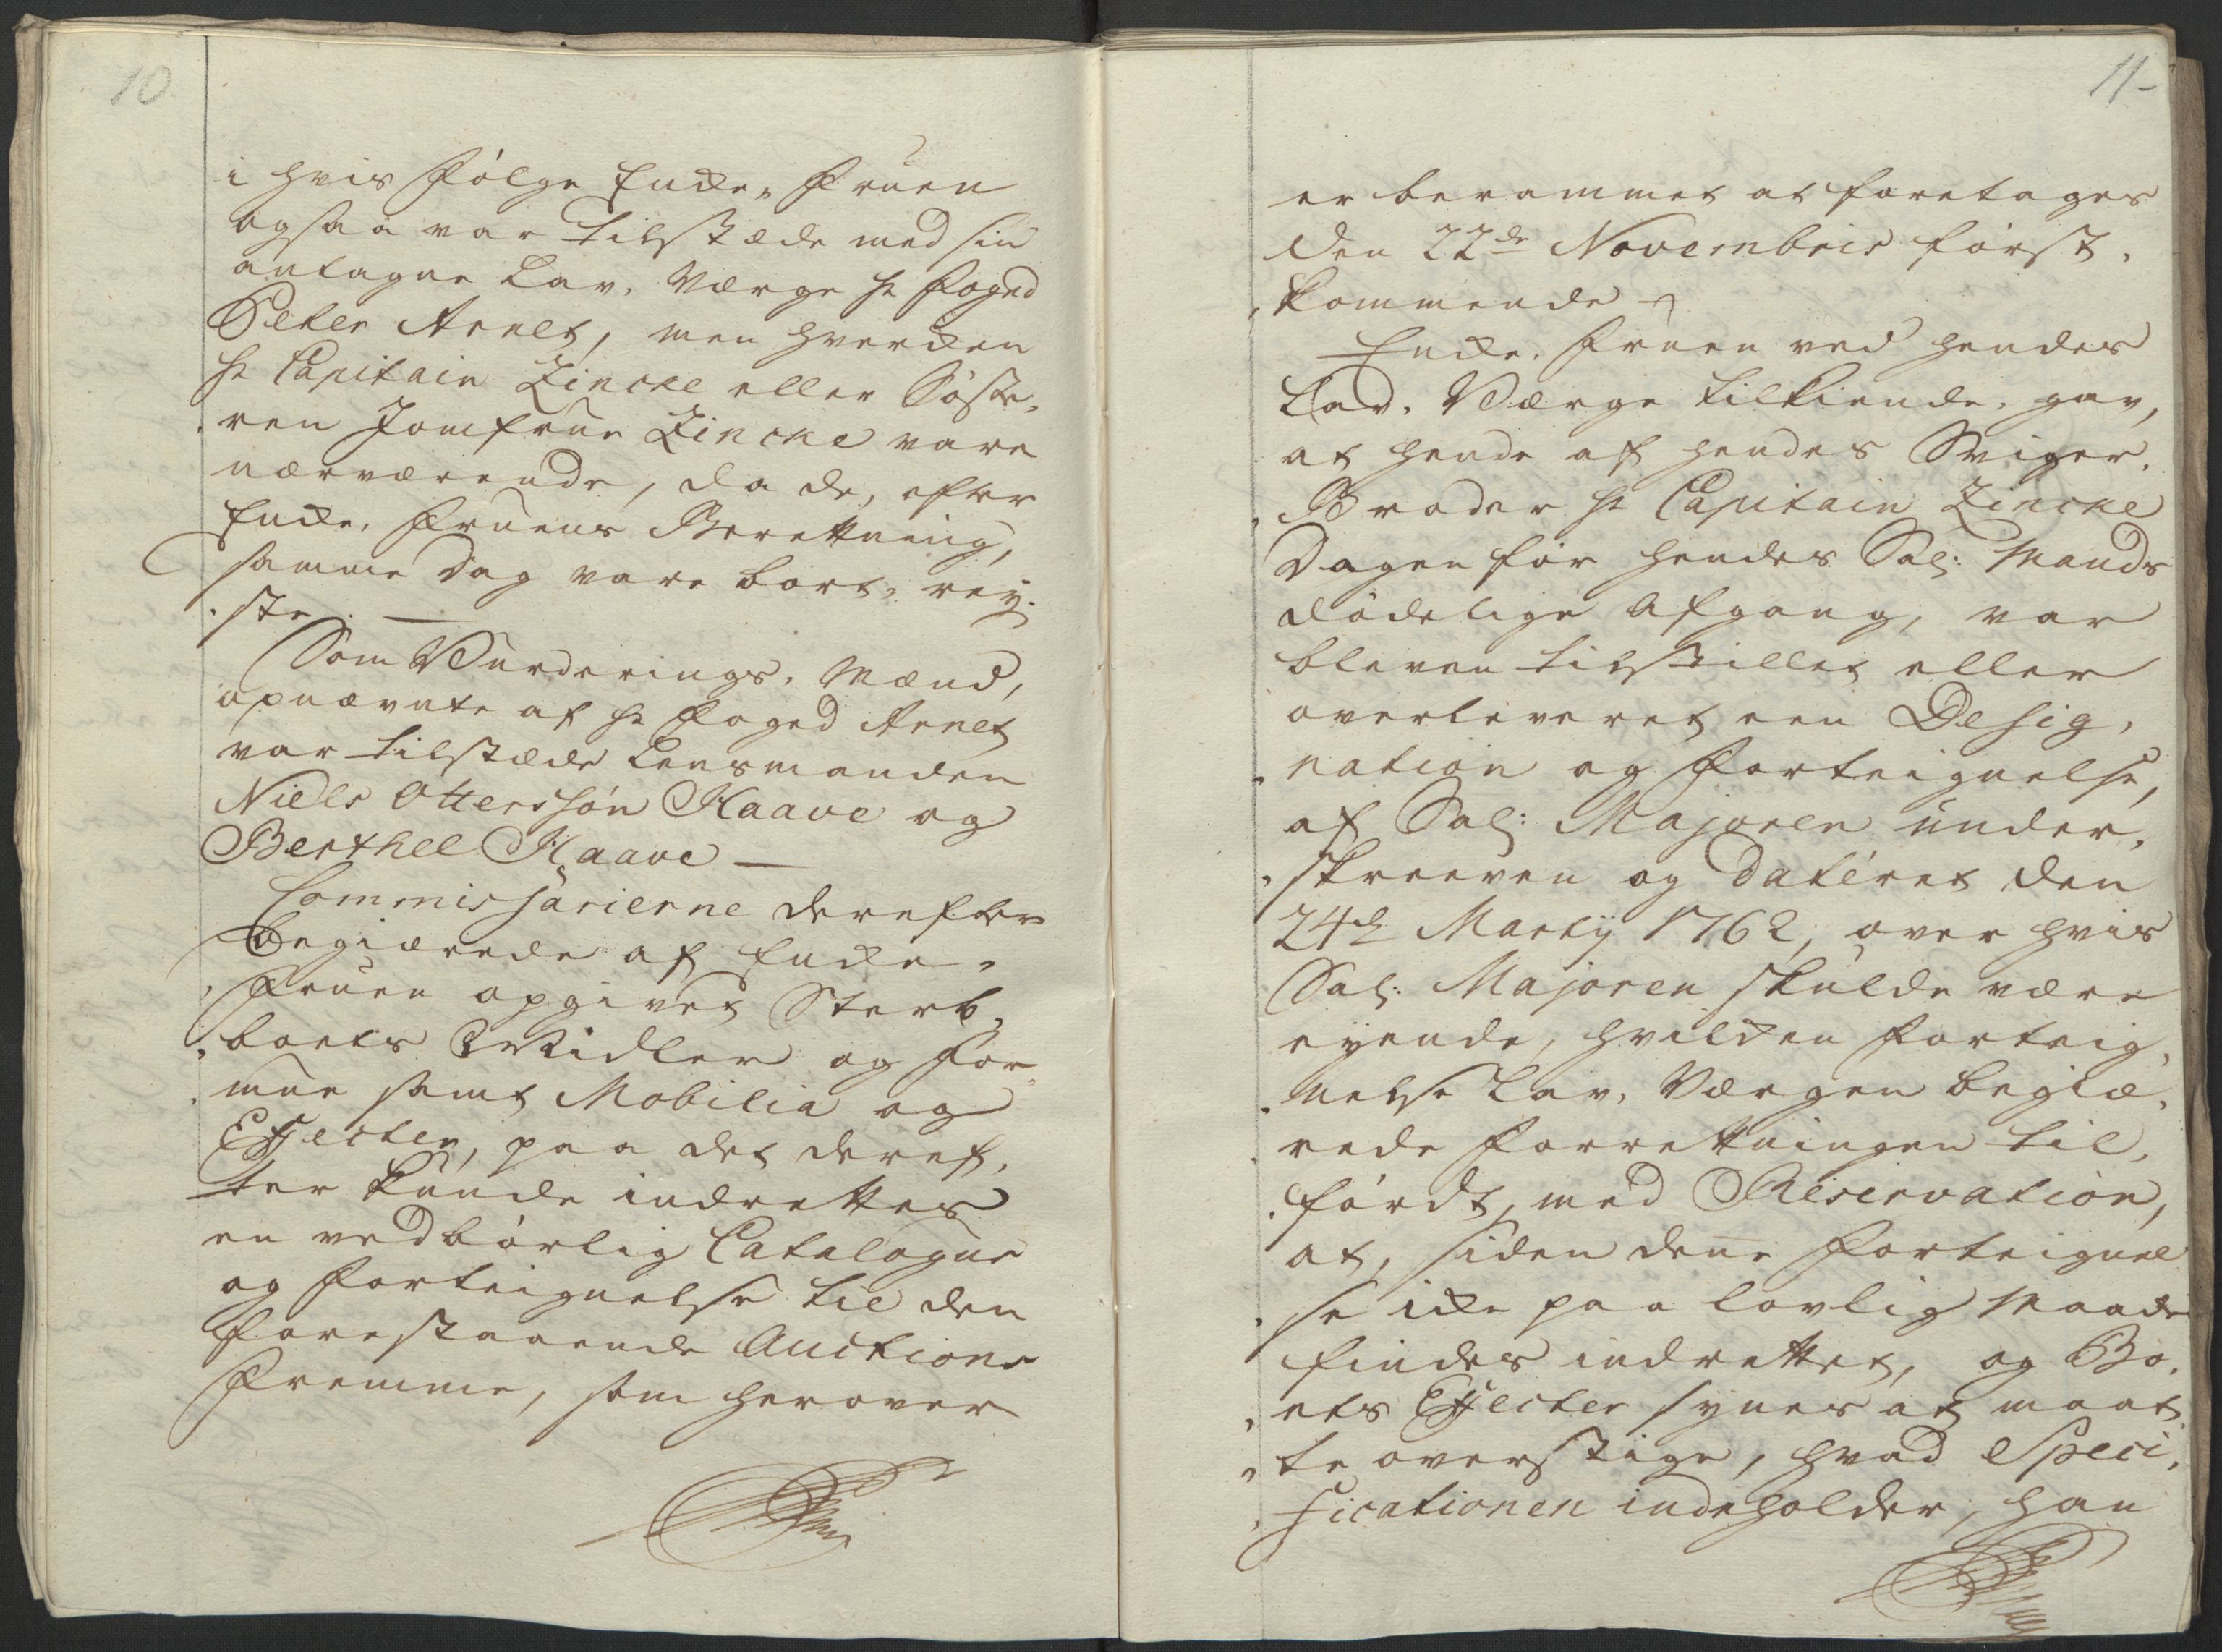 10
i hvis Følge Enke-Fruen
ogsaa var tilstæde med sin
antagne Lav-Værge Hr Foged
Peter Arnet, men hverken
Hr Capitain Zincke eller Søste-
ren Jomfrue Zincke vare
nærværende, da de, efter
Enke-Fruens Berettning,
samme Dag vare bort-rey-
ste. —
Som Vurderings-Mænd,
opnævnte af Hr Foged Arnet
var tilstæde Lensmanden
Niels Ottersøn Haave og
Berthel Haave —
Commissarierne derefter
begiærede af Enke-
Fruen opgivet Sterb-
boets Midler og For-
mue samt Mobilia og
Effecter, paa det deref-
ter kunde indrettes
en vedbørlig Catalogue
og Forteignelse til den
forestaaende Auctions
Fremme, som herover
11-
er berammet at foretages
den 22de Novembris først-
kommende
Enke-Fruen ved hendes
Lav-Værge tilkiende-gav,
at hende af hendes Sviger-
Broder Hr Capitain Zincke
Dagen før hendes Sal: Mands
dødelige Afgang, var
bleven tilstillet eller
overleveret een Desig-
nation og Forteignelse,
af Sal: Majoren under-
skreeven og dateret den
24de Marty 1762, over hvis
Sal: Majoren skulde være
eyende, hvilken Forteig-
nelse Lav-Værgen begiæ-
rede Forrettningen til-
ført, med Reservation,
at, siden denne Forteignel
se ikke paa lovlig Maade
findes indrettet, og Bo-
ets Effecter synes at maat-
te overstige, hvad Speci-
ficationen indeholder, han